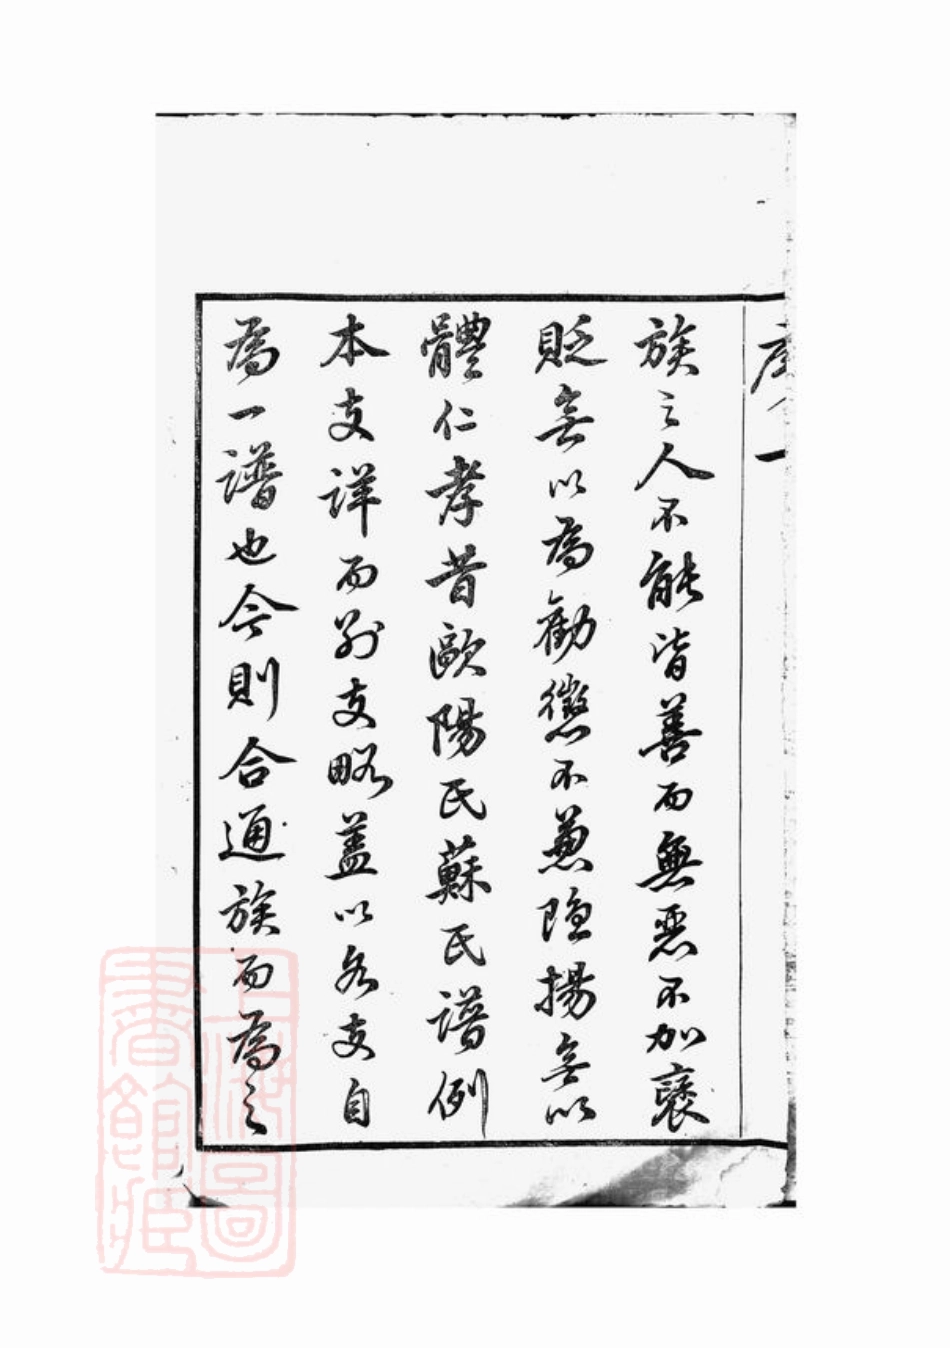 序 一
族之人不能皆善而無惡不加褒
貶無以為勸懲不兼隱揚無以
體仁孝昔歐陽氏蘇氏譜例
本支詳而別支略蓋以各支自
為一譜也今則合通族而為之
上海圖書館藏